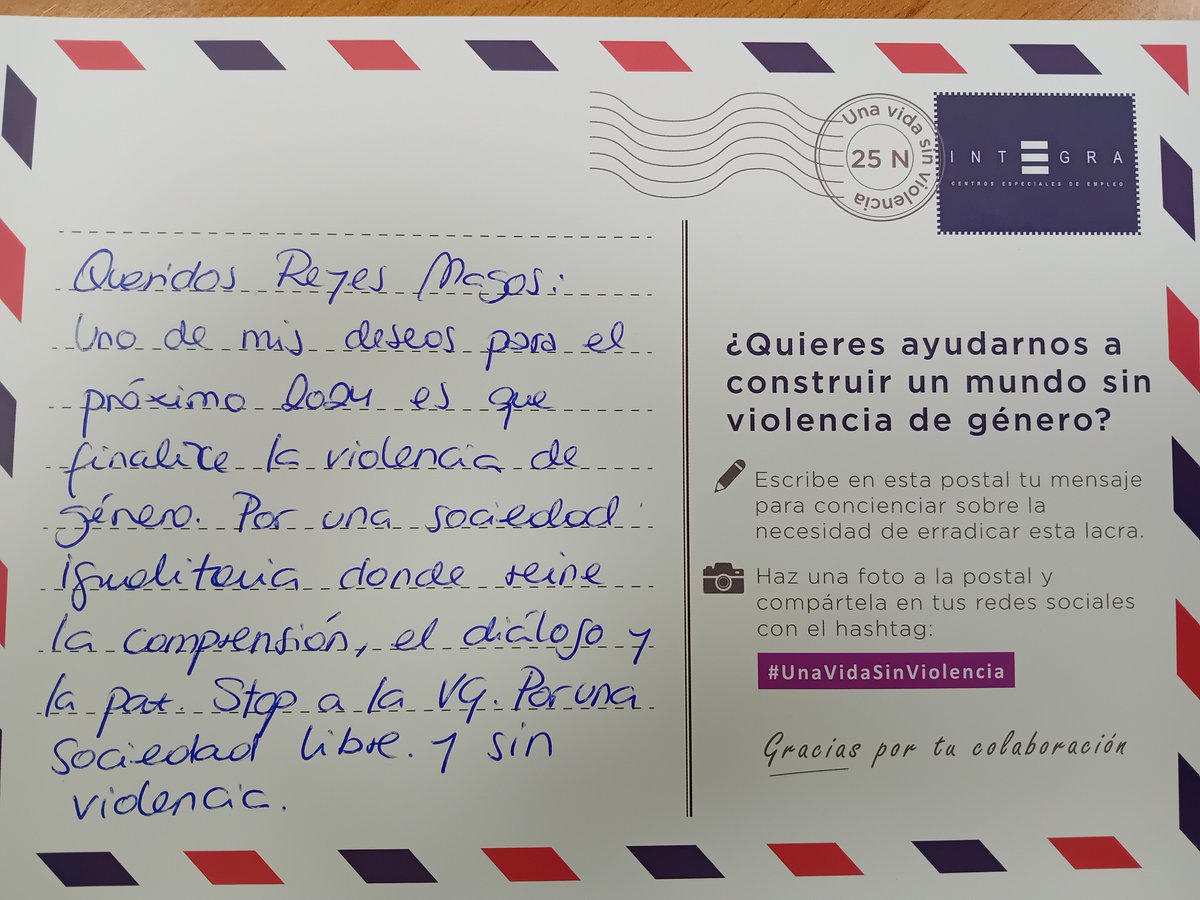 Una vida sin violencia
25 N
INTEGRA
CENTROS ESPECIALES DE EMPLEO
Queridos Reyes Magos:
Uno de mis deseos para el
próximo 2024 es que
finalice la violencia de
género. Por una sociedad
igualitaria donde reine
la comprensión, el diálogo y
la paz. Stop a la VG. Por una
sociedad libre. y sin
violencia.
¿Quieres ayudarnos a
construir un mundo sin
violencia de género?
Escribe en esta postal tu mensaje
para concienciar sobre la
necesidad de erradicar esta lacra.
Haz una foto a la postal y
compártela en tus redes sociales
con el hashtag:
#UnaVidaSinViolencia
Gracias por tu colaboración